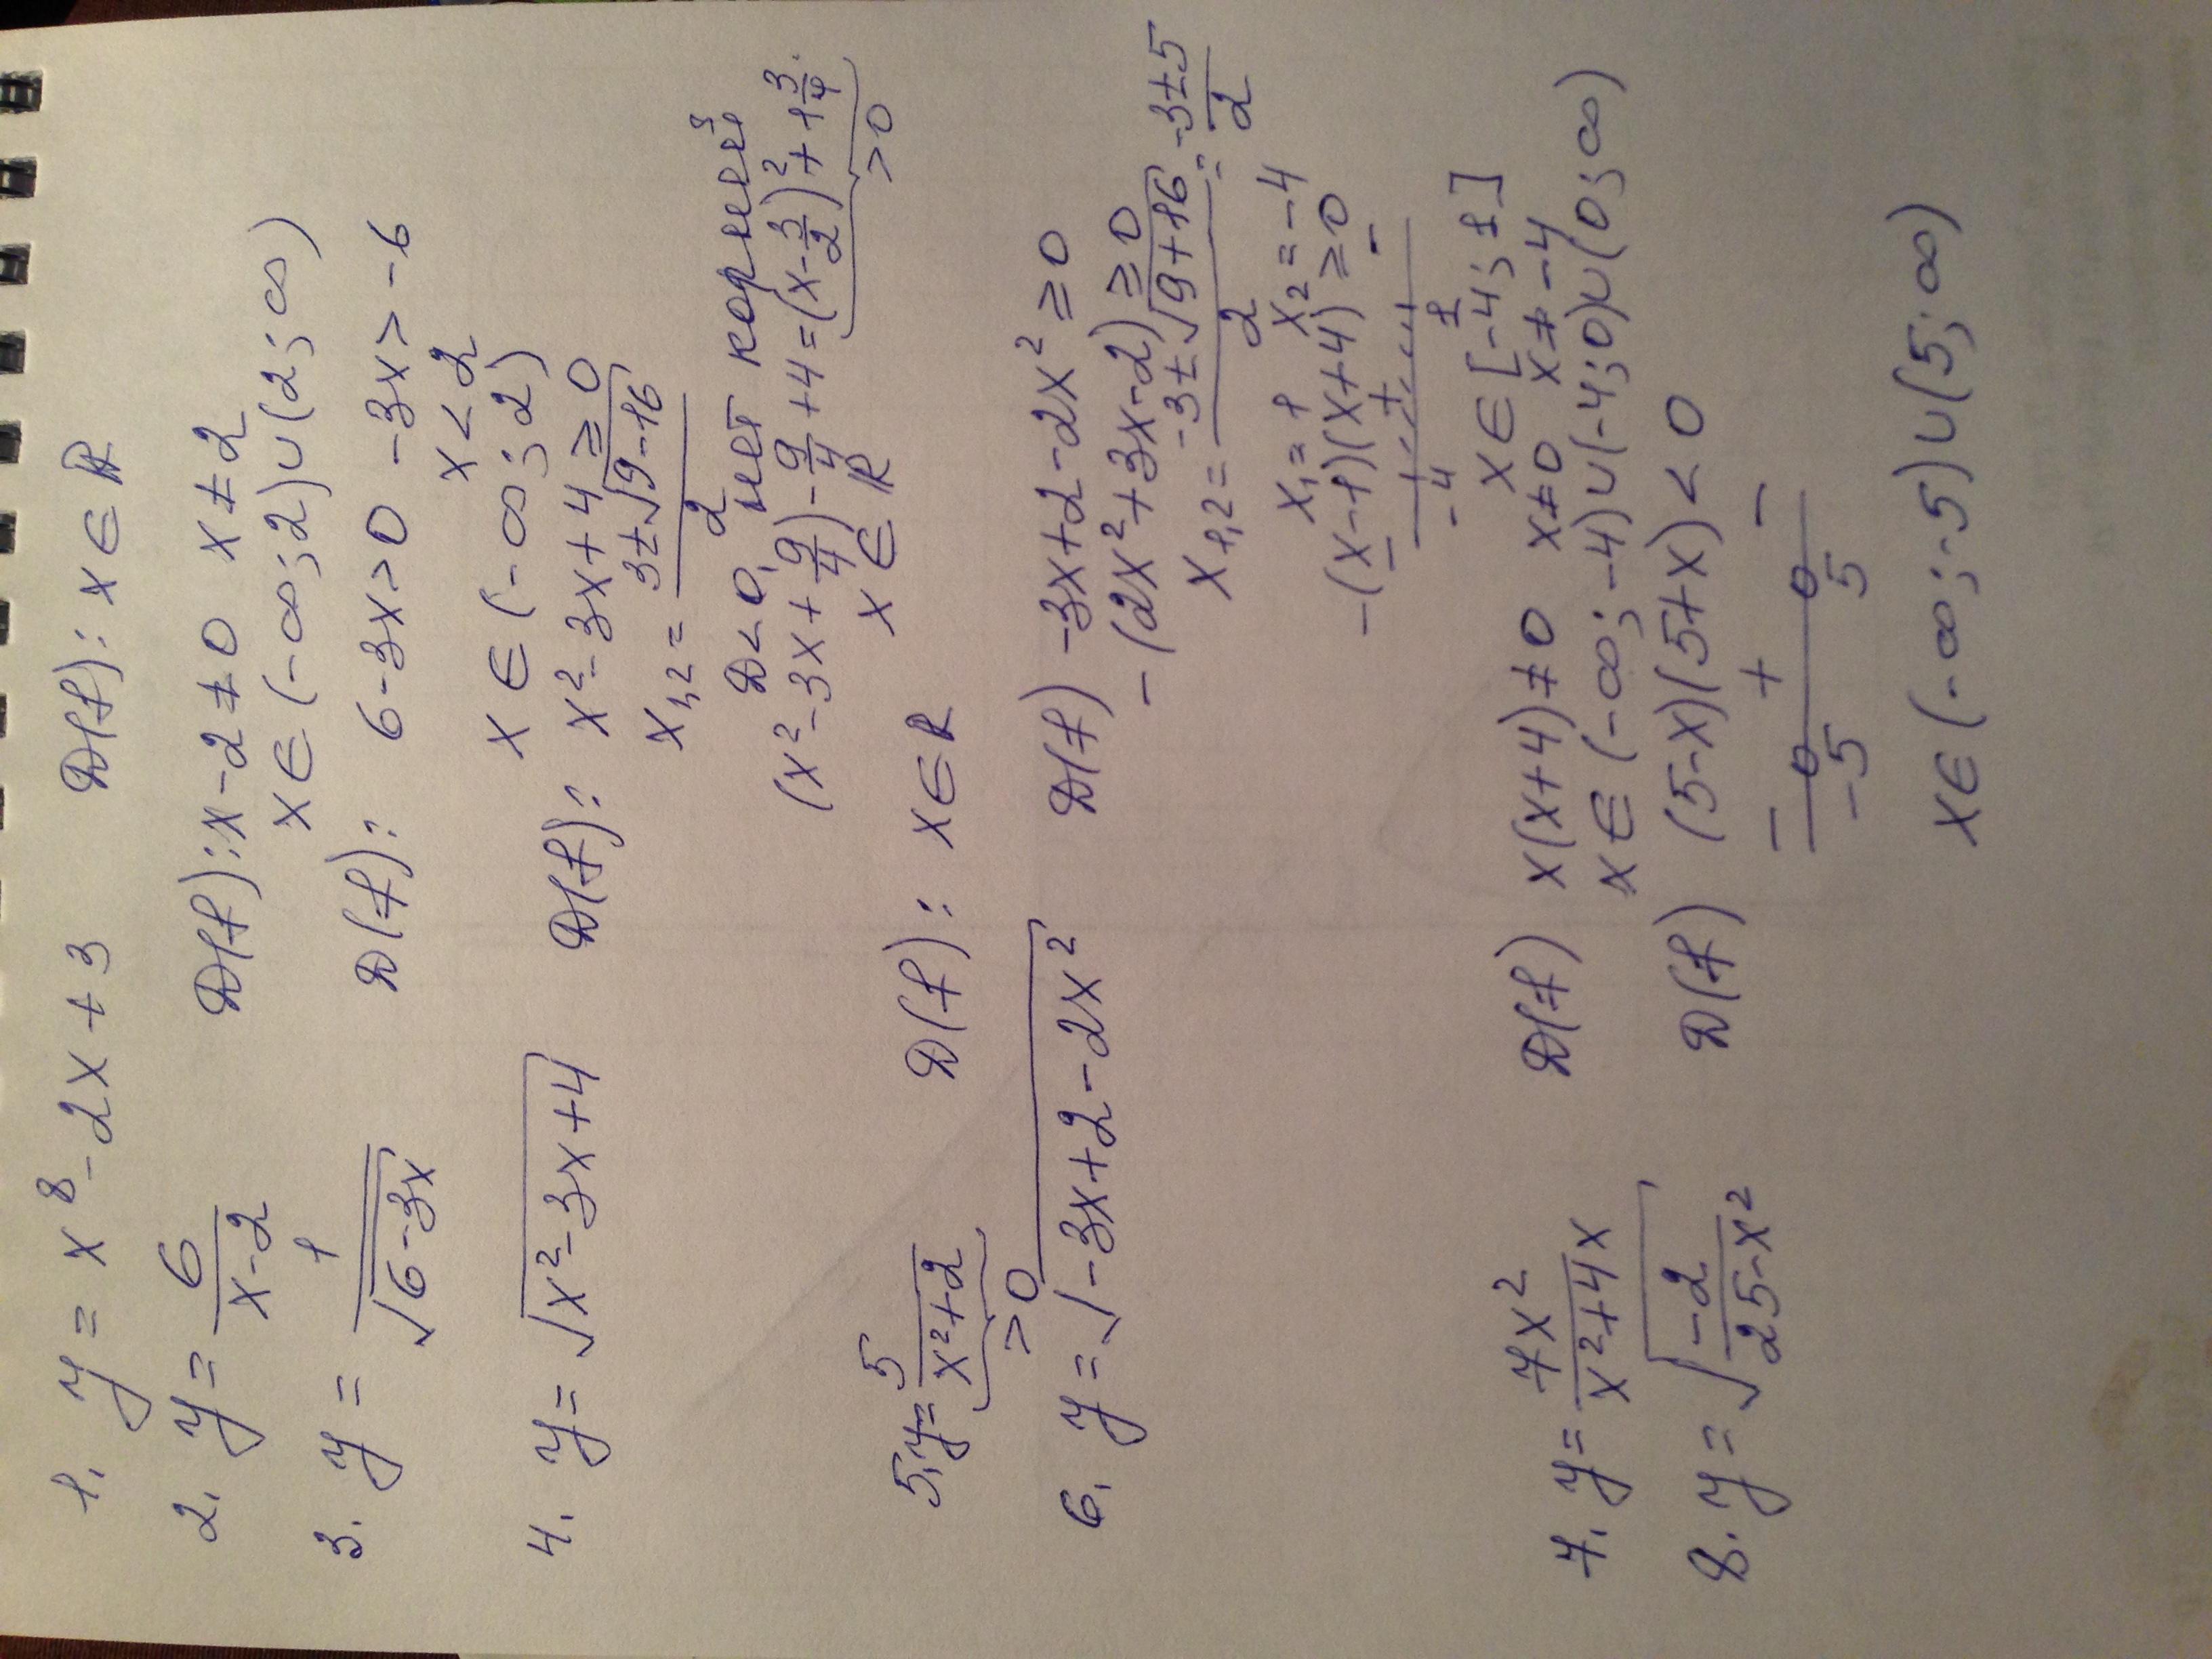 1. y = x⁸ - 2x + 3   D(f): x ∈ R
2. y = 6/(x-2)   D(f): x-2 ≠ 0   x ≠ 2
x ∈ (-∞; 2) ∪ (2; ∞)
3. y = 1/√(6-3x)   D(f): 6-3x > 0   -3x > -6
x < 2
x ∈ (-∞; 2)
4. y = √(x²-3x+4)   D(f): x²-3x+4 ≥ 0
x₁,₂ = (3±√(9-16))/2
D<0, нет корней
(x²-3x+9/4)-9/4+4=(x-3/2)²+1 3/4.
x ∈ R   >0
5. y = 5/(x²+2)   D(f): x ∈ R
>0
6. y = √(-3x+2-2x²)   D(f) -3x+2-2x² ≥ 0
-(2x²+3x-2) ≥ 0
x₁,₂ = (-3±√(9+16))/2 = (-3±5)/2
x₁ = 1   x₂ = -4
-(x-1)(x+4) ≥ 0
-   +   -
-4   1
x ∈ [-4; 1]
7. y = 7x²/(x²+4x)   D(f) x(x+4) ≠ 0   x ≠ 0   x ≠ -4
x ∈ (-∞; -4) ∪ (-4; 0) ∪ (0; ∞)
8. y = √(-2/(25-x²))   D(f) (5-x)(5+x) < 0
-   +   -
-5   5
x ∈ (-∞; -5) ∪ (5; ∞)